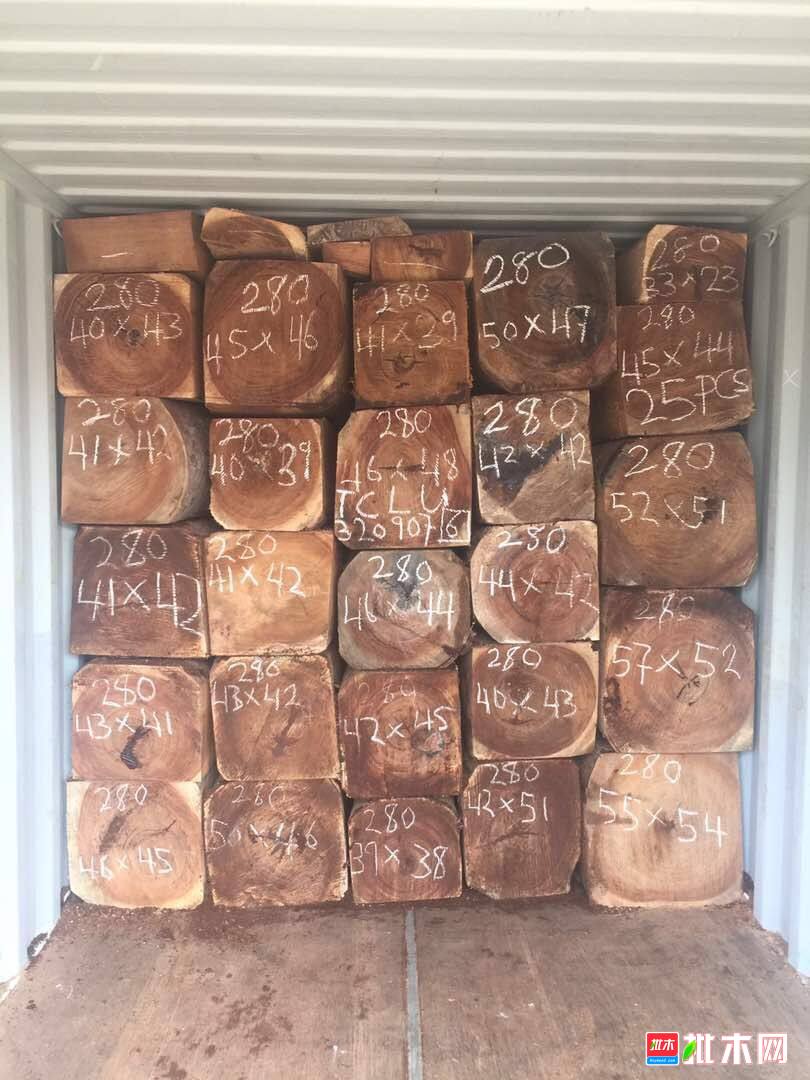 280
40×43
280
45× 46
280
41×39
280
50×47
280
33×23
280
45×44
25PCS
280
41×42
280
40×39
280
46×48
TCLU
320907 6
280
42×42
280
52×51
280
41×42
280
41×42
280
46×44
280
44×42
280
57×52
280
43×41
280
43×42
280
42×45
280
40×43
280
46×45
280
50×46
280
39×38
280
42×51
280
55×54
批木
批木网